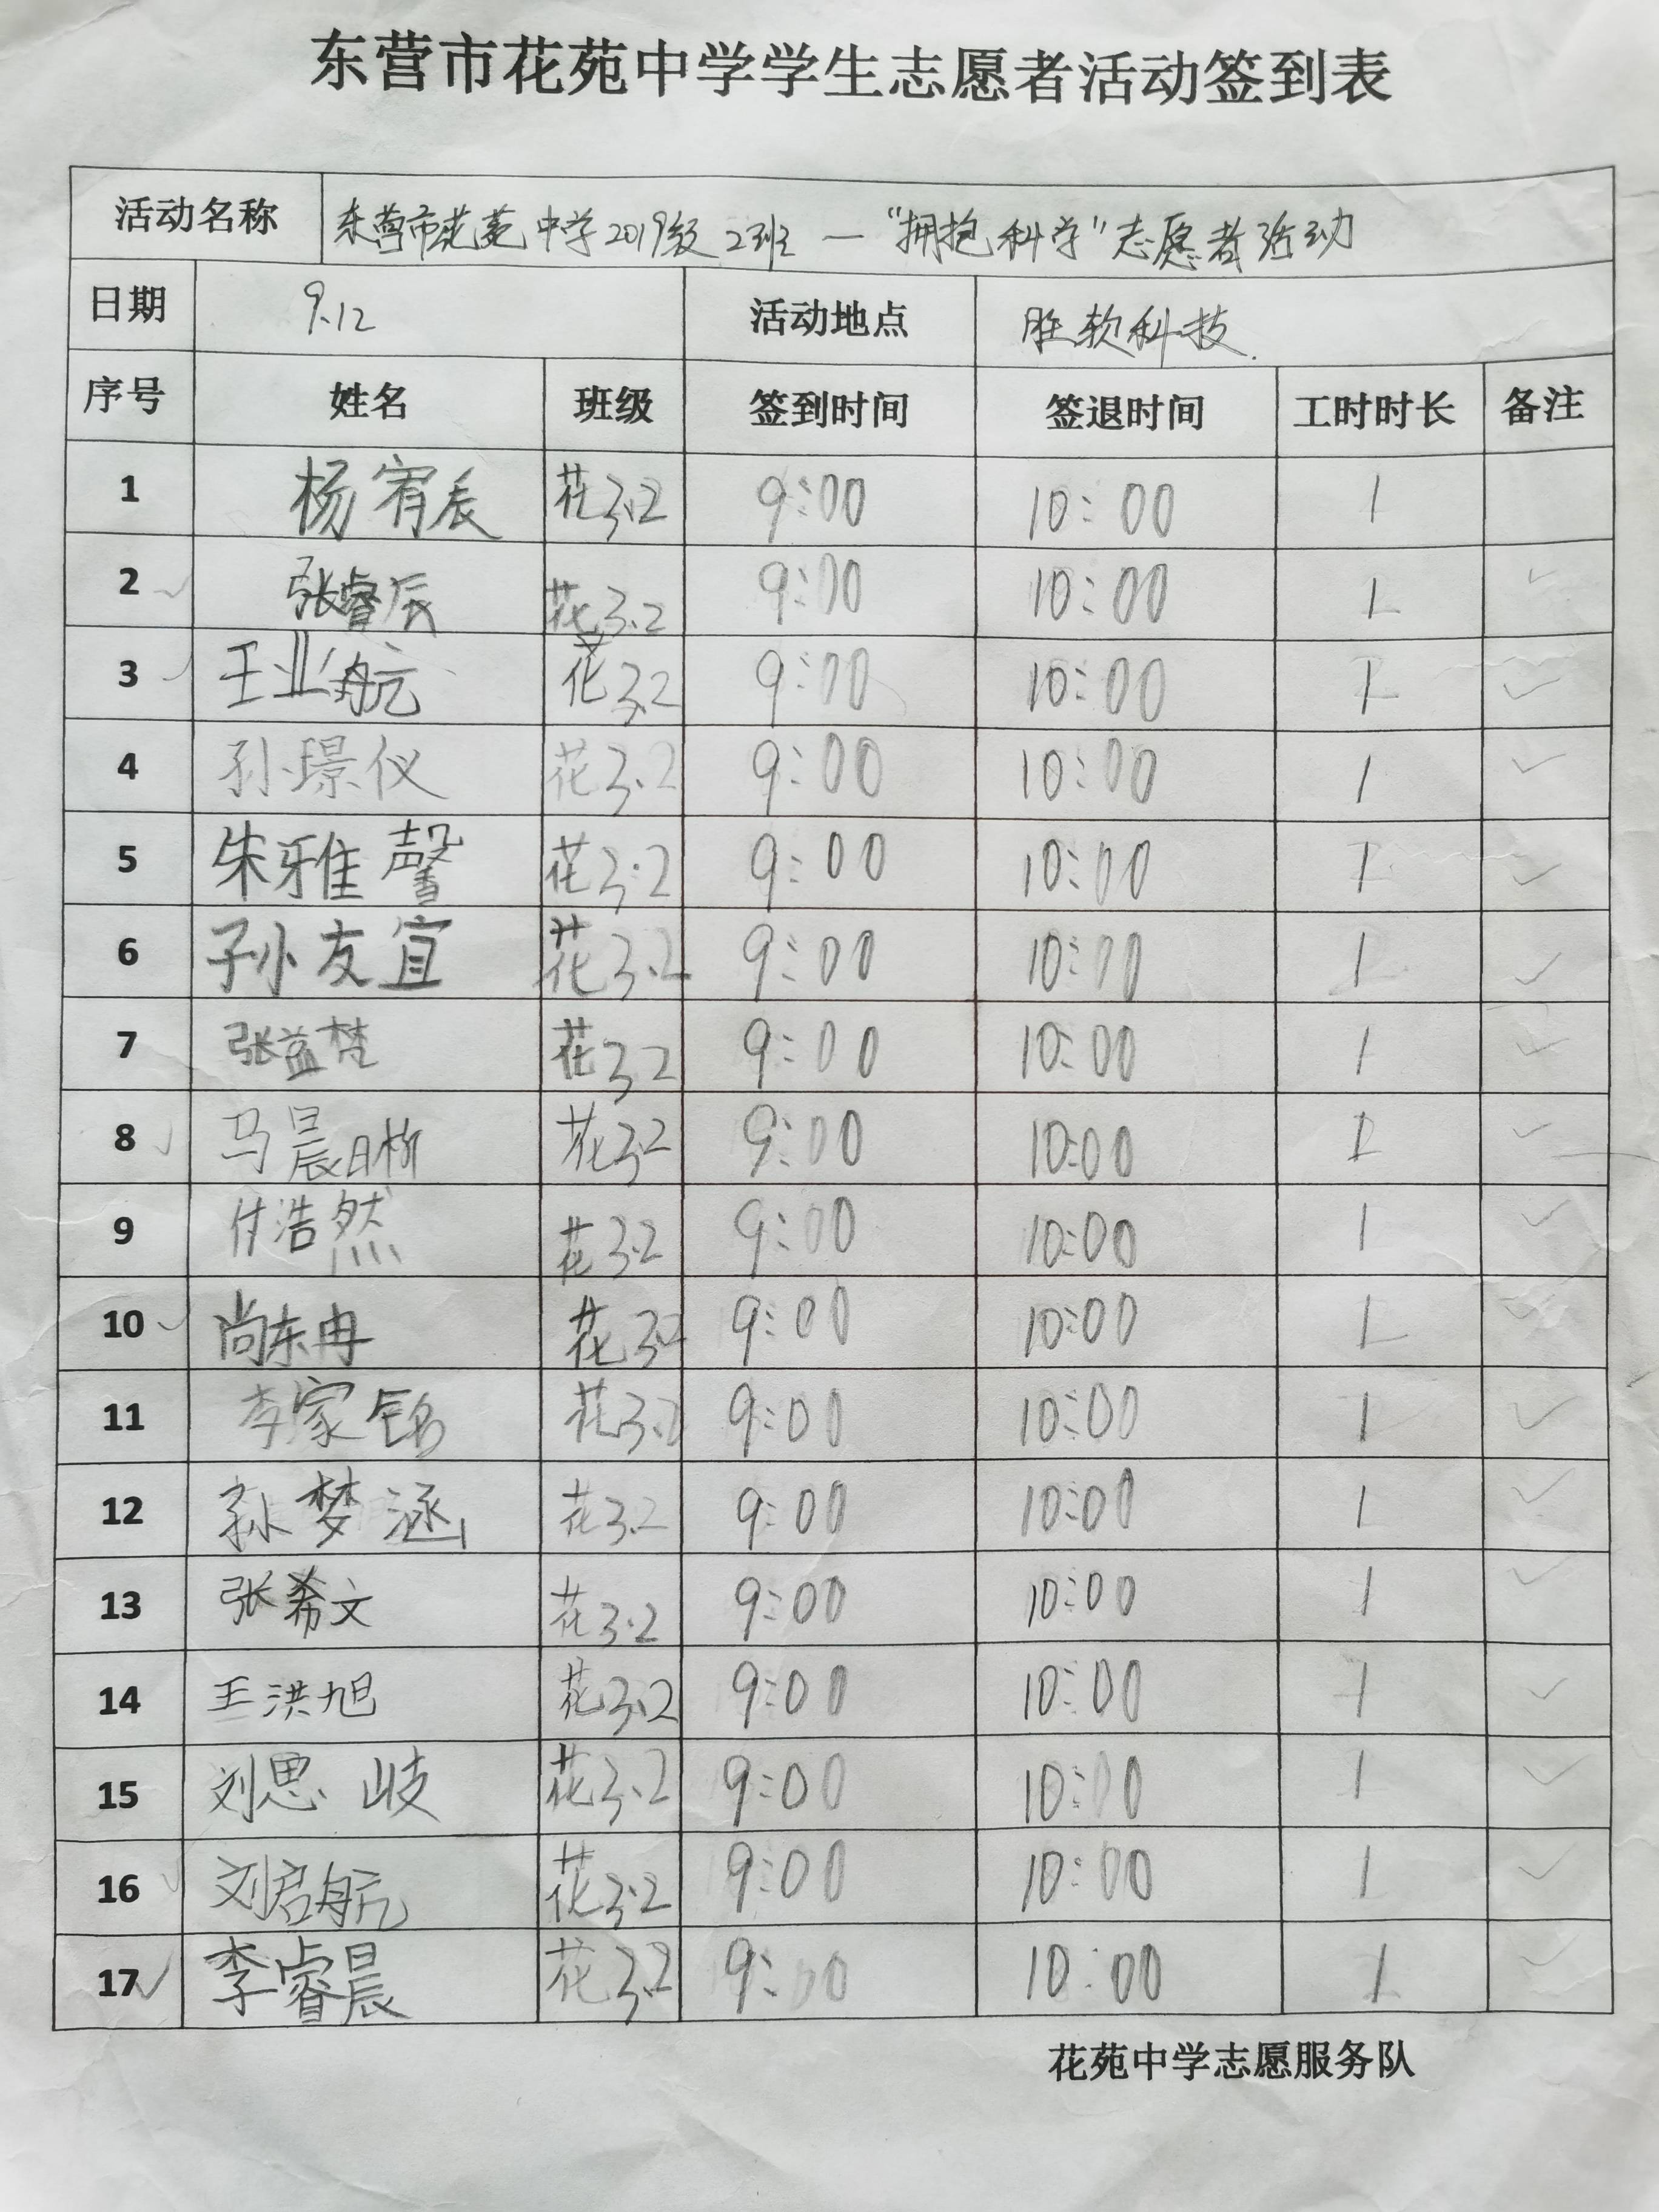 东营市花苑中学学生志愿者活动签到表
活动名称 东营市花苑中学2019级2班 — “拥抱科学”志愿者活动
日期 9.12 活动地点 胜软科技
序号 姓名 班级 签到时间 签退时间 工时时长 备注
1 杨宥辰 花3.2 9:00 10:00 1
2 张睿辰 花3.2 9:00 10:00 1 ✓
3 王业航 花3.2 9:00 10:00 1 ✓
4 孙璟仪 花3.2 9:00 10:00 1 ✓
5 朱雅馨 花3.2 9:00 10:00 1 ✓
6 孙友宜 花3.2 9:00 10:00 1 ✓
7 张益梵 花3.2 9:00 10:00 1 ✓
8 马晨 花3.2 9:00 10:00 1 ✓
9 付浩然 花3.2 9:00 10:00 1 ✓
10 尚东冉 花3.2 9:00 10:00 1 ✓
11 李家铭 花3.2 9:00 10:00 1 ✓
12 孙梦涵 花3.2 9:00 10:00 1 ✓
13 张希文 花3.2 9:00 10:00 1 ✓
14 王洪旭 花3.2 9:00 10:00 1 ✓
15 刘思岐 花3.2 9:00 10:00 1 ✓
16 刘启航 花3.2 9:00 10:00 1 ✓
17 李睿晨 花3.2 9:00 10:00 1 ✓
花苑中学志愿服务队